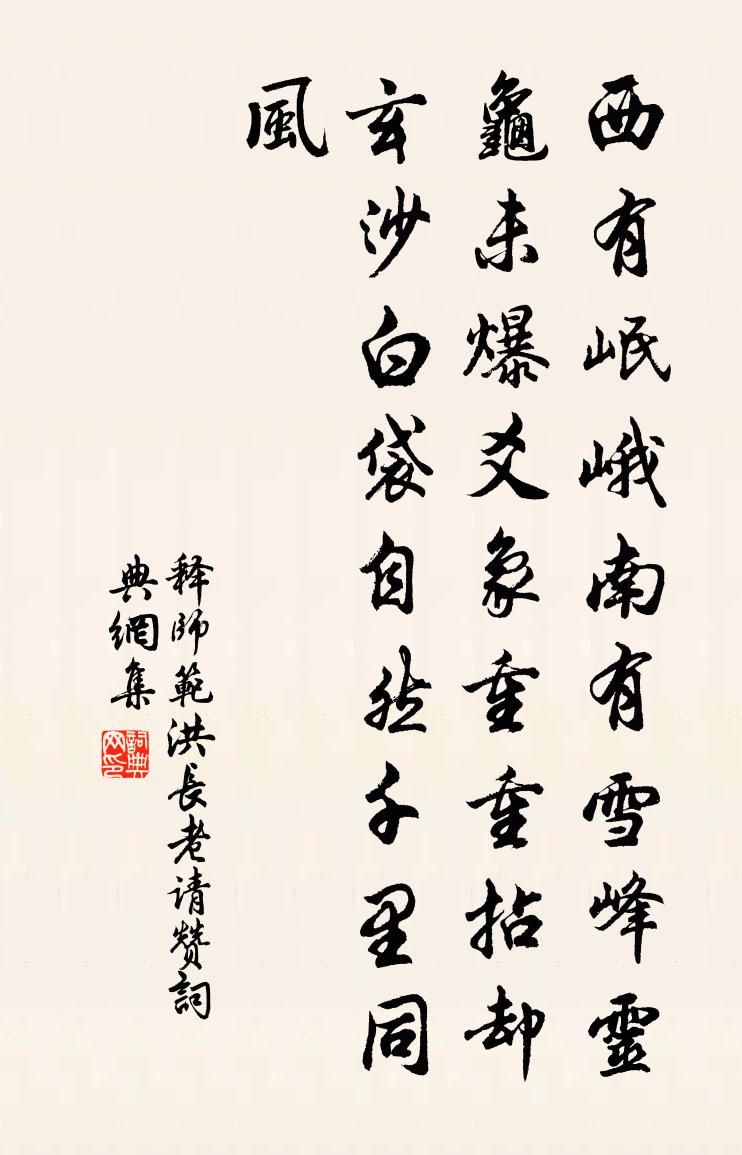 西有岷峨南有雪峰靈
龜未爆爻象重重拈却
玄沙白袋自然千里同
風
释師範洪長老请赞詞
典網集
詞典网印